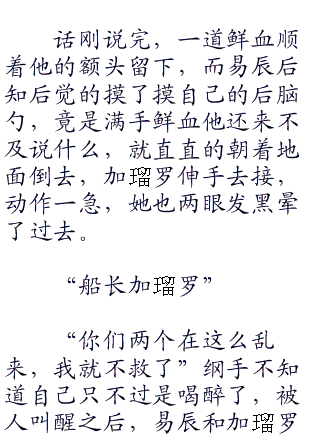 话刚说完，一道鲜血顺
着他的额头留下，而易辰后
知后觉的摸了摸自己的后脑
勺，竟是满手鲜血他还来不
及说什么，就直直的朝着地
面倒去，加瑠罗伸手去接，
动作一急，她也两眼发黑晕
了过去。
“船长加瑠罗”
“你们两个在这么乱
来，我就不救了”纲手不知
道自己只不过是喝醉了，被
人叫醒之后，易辰和加瑠罗